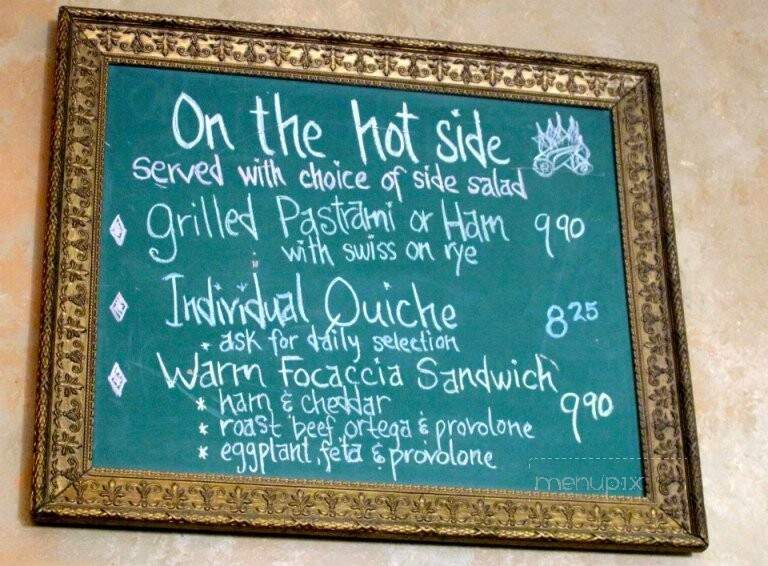 On the hot side
served with choice of side salad
grilled Pastrami or Ham 9 90
with swiss on rye
Individual Quiche 8 25
* ask for daily selection
Warm Focaccia Sandwich 9 90
* ham & cheddar
* roast beef, ortega & provolone
* eggplant, feta & provolone
menupix